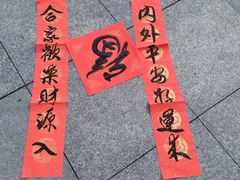 内外平安好運来
合家歡樂財源入
福